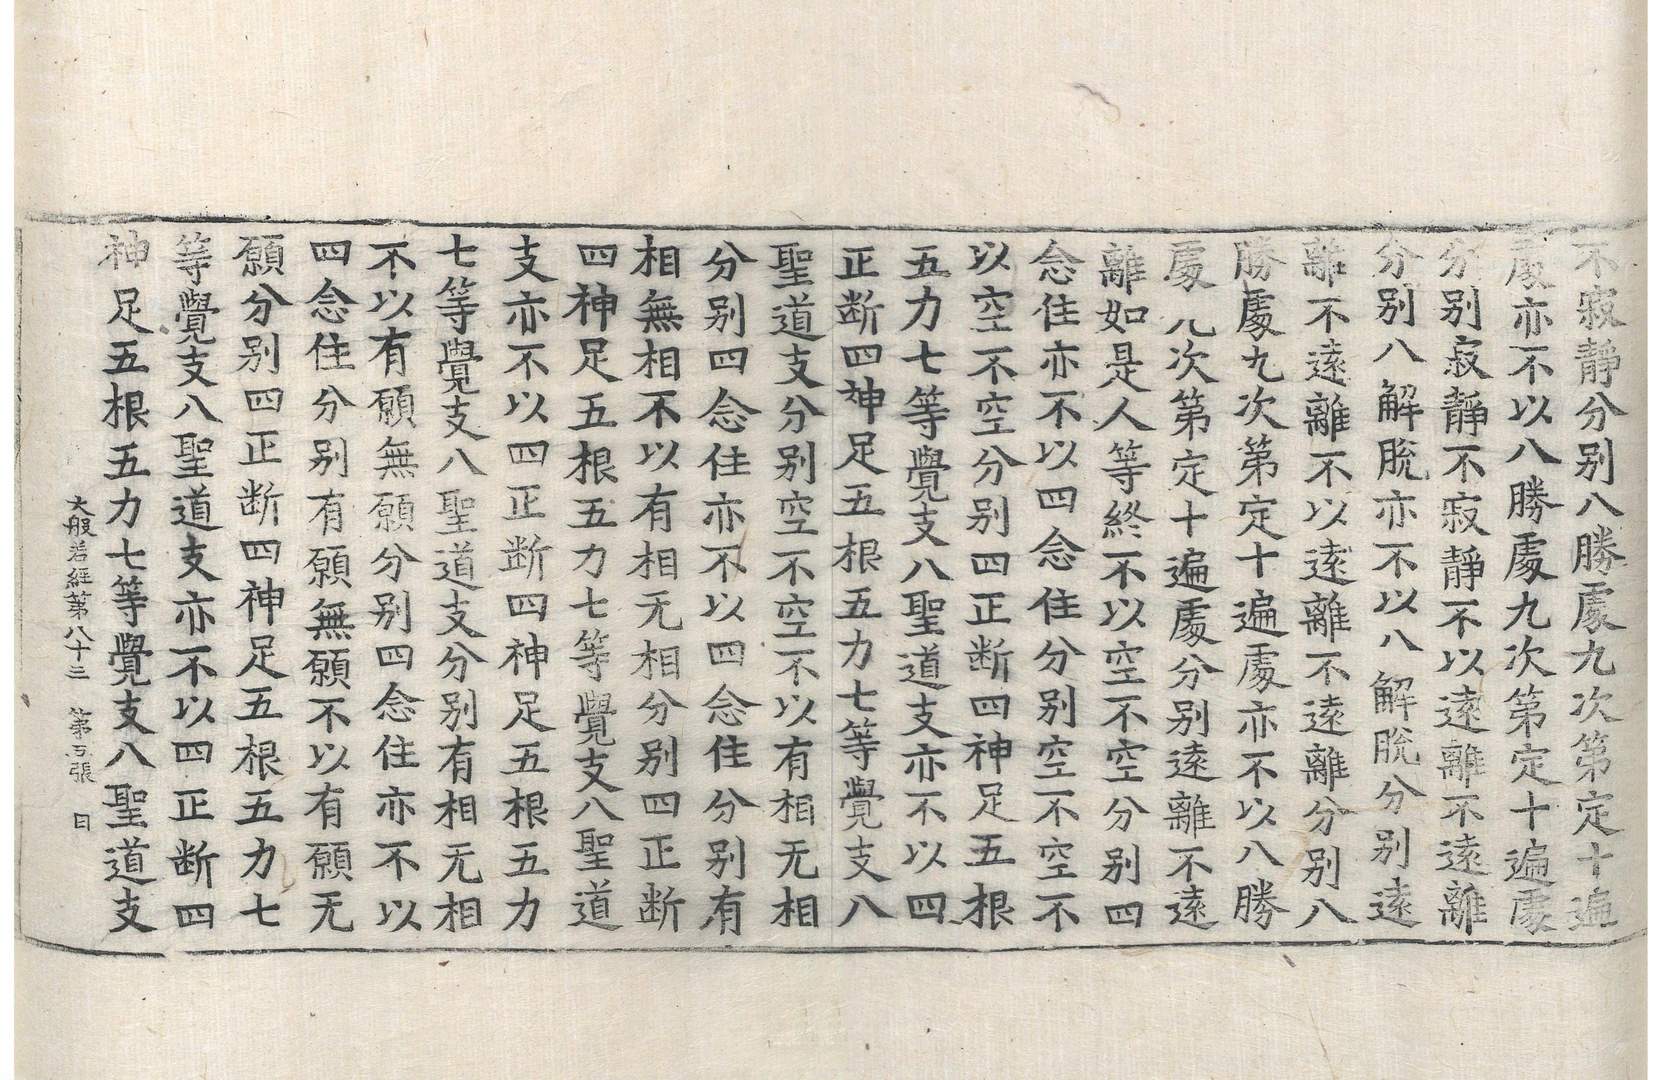 不寂靜分别八勝處九次第定十遍
處亦不以八勝處九次第定十遍處
分别寂靜不寂靜不以遠離不遠離
分别八解脫亦不以八解脫分别遠
離不遠離不以遠離不遠離分别八
勝處九次第定十遍處亦不以八勝
處九次第定十遍處分别遠離不遠
離如是人等終不以空不空分别四
念住亦不以四念住分别空不空不
以空不空分别四正断四神足五根
五力七等覺支八聖道支亦不以四
正断四神足五根五力七等覺支八
聖道支分别空不空不以有相无相
分别四念住亦不以四念住分别有
相無相不以有相无相分别四正断
四神足五根五力七等覺支八聖道
支亦不以四正断四神足五根五力
七等覺支八聖道支分别有相无相
不以有願無願分别四念住亦不以
四念住分别有願無願不以有願无
願分别四正断四神足五根五力七
等覺支八聖道支亦不以四正断四
神足五根五力七等覺支八聖道支
大般若經第八十二 第五張 日